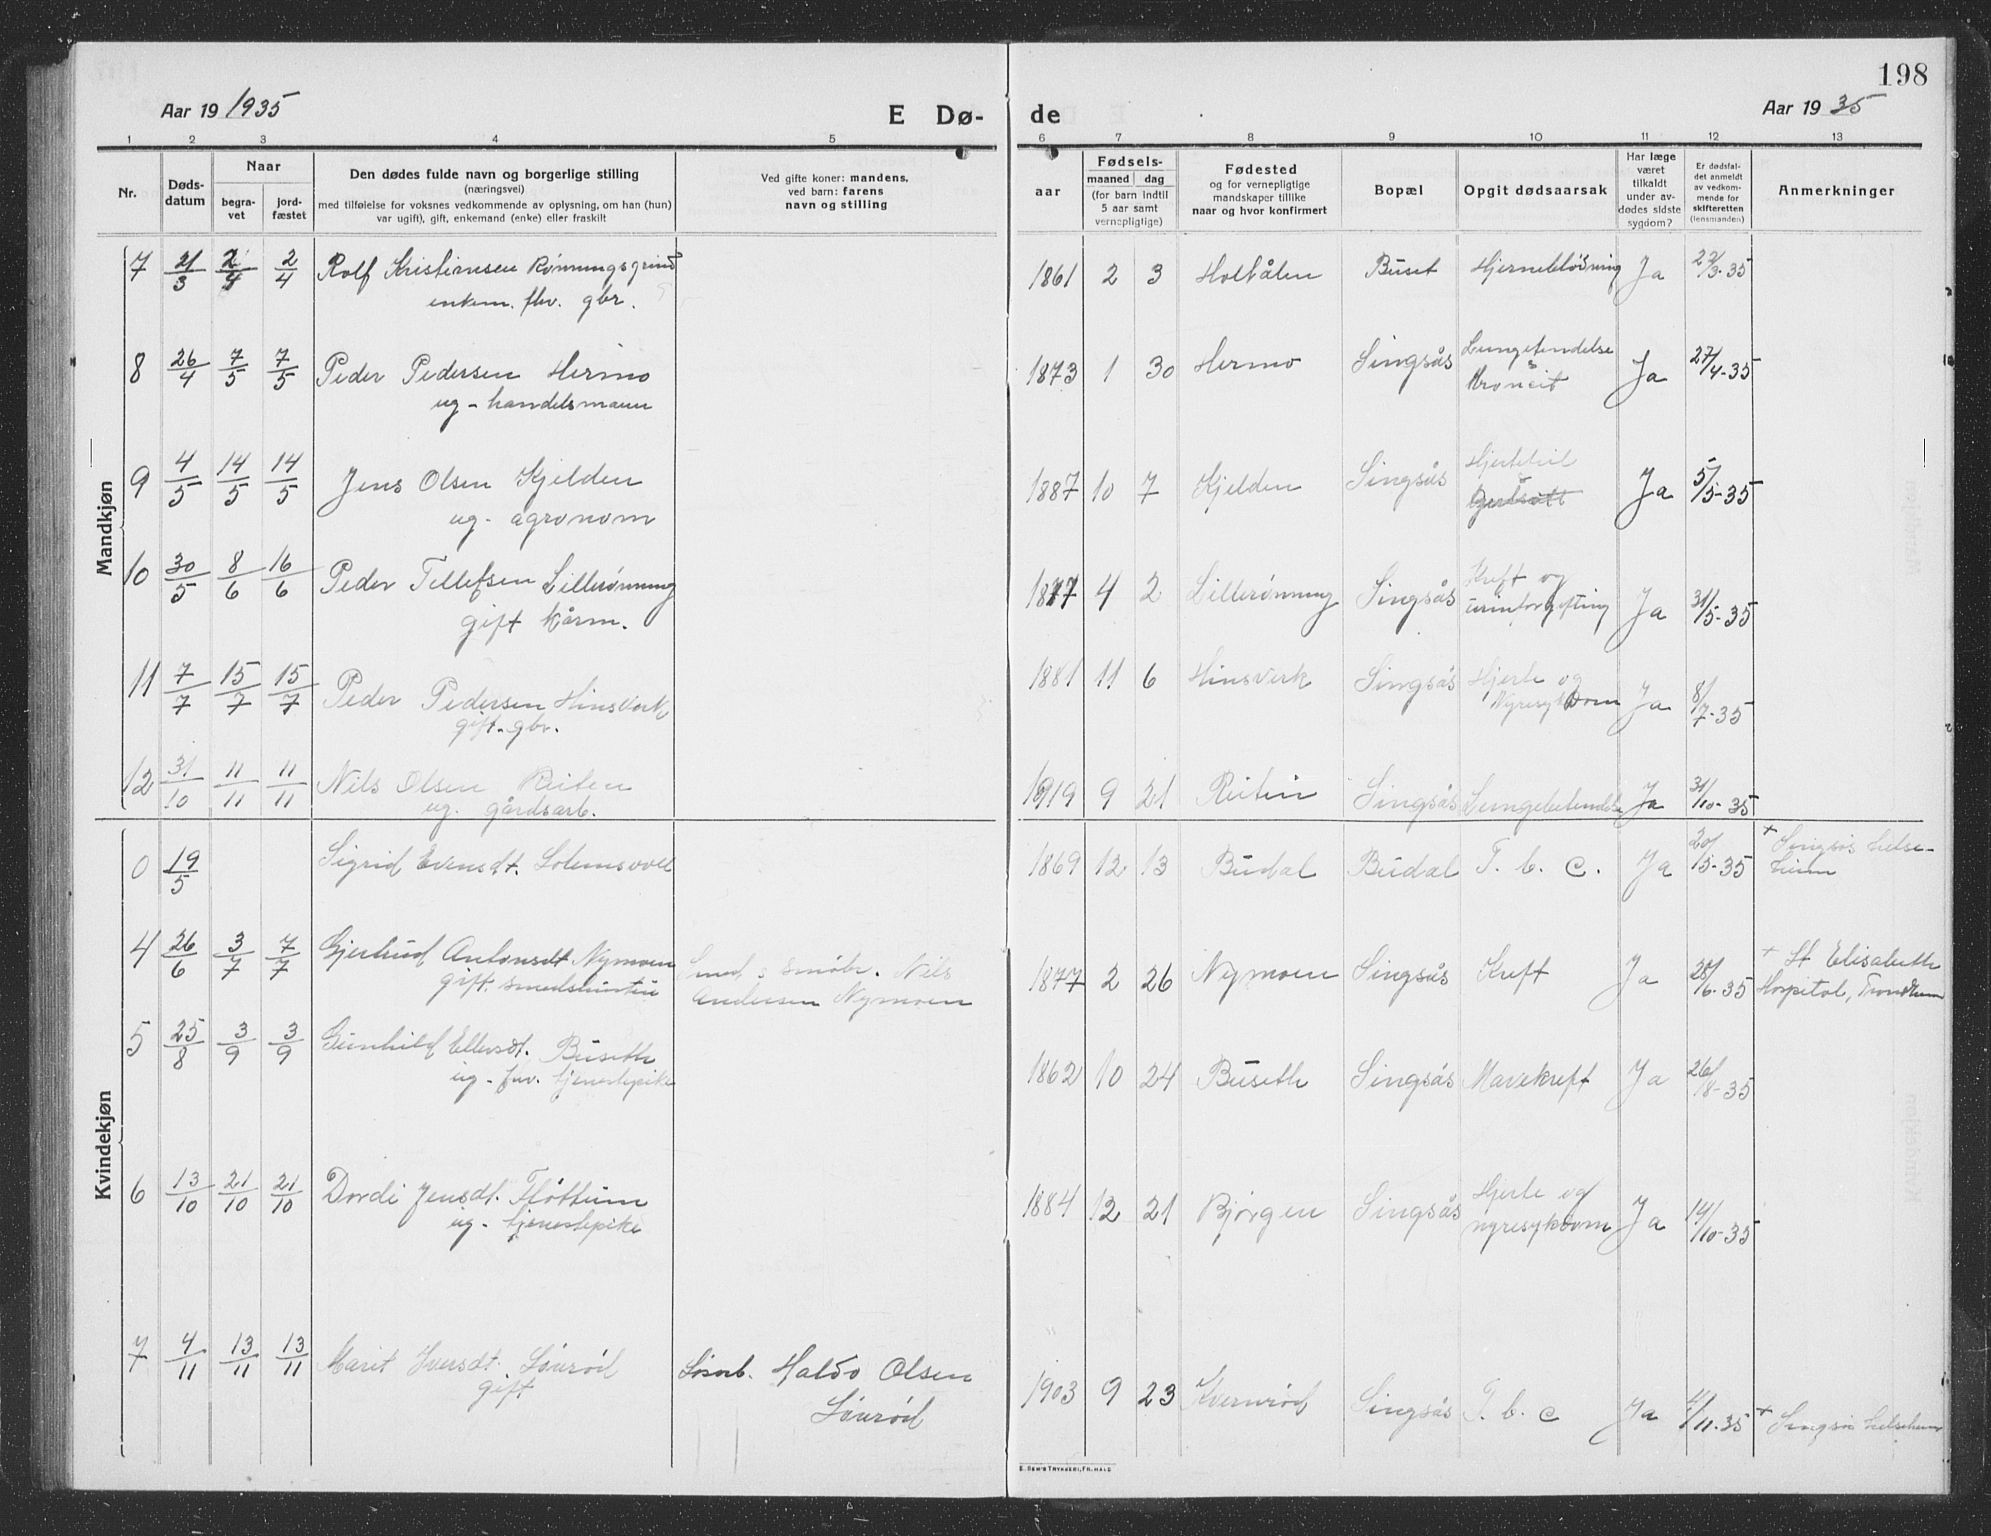 198
Aar 19 1935
E Dø-
de
Aar 19 35
1 2 3 4 5 6 7 8 9 10 11 12 13
Nr.
Døds-
datum
Naar
begra-
vet
jord-
fæstet
Den dødes fulde navn og borgerlige stilling
(næringsvei)
med tilføielse for voksnes vedkommende av oplysning, om han (hun)
var ugift), gift, enkemand (enke) eller fraskilt
Ved gifte koner: mandens,
ved barn: farens
navn og stilling
aar
Fødsels-
maaned dag
(for barn indtil
5 aar samt
vernepligtige)
Fødested
og for vernepligtige
mandskaper tillike
naar og hvor konfirmert
Bopæl
Opgit dødsaarsak
Har læge
været
tilkaldt
under av-
dødes sidste
sygdom?
Er dødsfal-
det anmeldt
av vedkom-
mende for
skifteretten
(lensmanden)
Anmerkninger
Mandkjøn
7 21/3 2/4 2/4 Rolf Kristiansen Rønningsgrind 1861 2 3 Holtålen Buset Hjerneblødning Ja 22/3-35
enkem. fhv. gbr.
8 26/4 7/5 7/5 Peder Pedersen Hermo 1873 1 30 Hermo Singsås Lungetendelse Ja 27/4-35
ug - handelsmann
9 4/5 14/5 14/5 Jens Olsen Kjelden 1887 10 7 Kjelden Singsås Hjertefeil Ja 5/5-35
ug. agronom
10 30/5 8/6 16/6 Peder Tellefsen Lillerønning 1877 4 2 Lillerønning Singsås Kreft og Ja 31/5-35
gift kårm. urinforgifting
11 7/7 15/7 15/7 Peder Pedersen Hinsverk 1881 11 6 Hinsverk Singsås Hjerte og Ja 8/7-35
gift. gbr. Nyresykdom
12 31/10 11/11 11/11 Nils Olsen Reiten 1919 9 21 Reiten Singsås Lungebetendelse Ja 31/10-35
ug. gårdsarb.
Kvindekjøn
0 19/5 Sigrid Evensdt. Solemsvoll 1869 12 13 Budal Budal T. b. c. Ja 20/5-35 + Singsås helse-
heim
4 26/6 3/7 7/7 Gjertrud Antonsdt Nymoen Smed s småbr. Nils 1877 2 26 Nymoen Singsås Kreft Ja 28/6-35 + St Elisabeth
gift. smedshustru Andersen Nymoen Hospital, Trondheim
5 25/8 3/9 3/9 Gunhild Ellevsdt. Buseth 1862 10 24 Buseth Singsås Mavekreft Ja 26/8-35
ug - fhv. tjenestepike
6 13/10 21/10 21/10 Dordi Jensdt. Fløttum 1884 12 21 Bjørgen Singsås Hjerte og Ja 14/10-35
ug - tjenestepike nyresykdom
7 4/11 13/11 13/11 Marit Iversdt. Lønrød Haldo Olsen 1903 9 23 Kvernrød Singsås T. b. c Ja 4/11-35 + Singsås helseheim
gift Lønrød
E. SEM'S TRYKKERI, FR. HALD